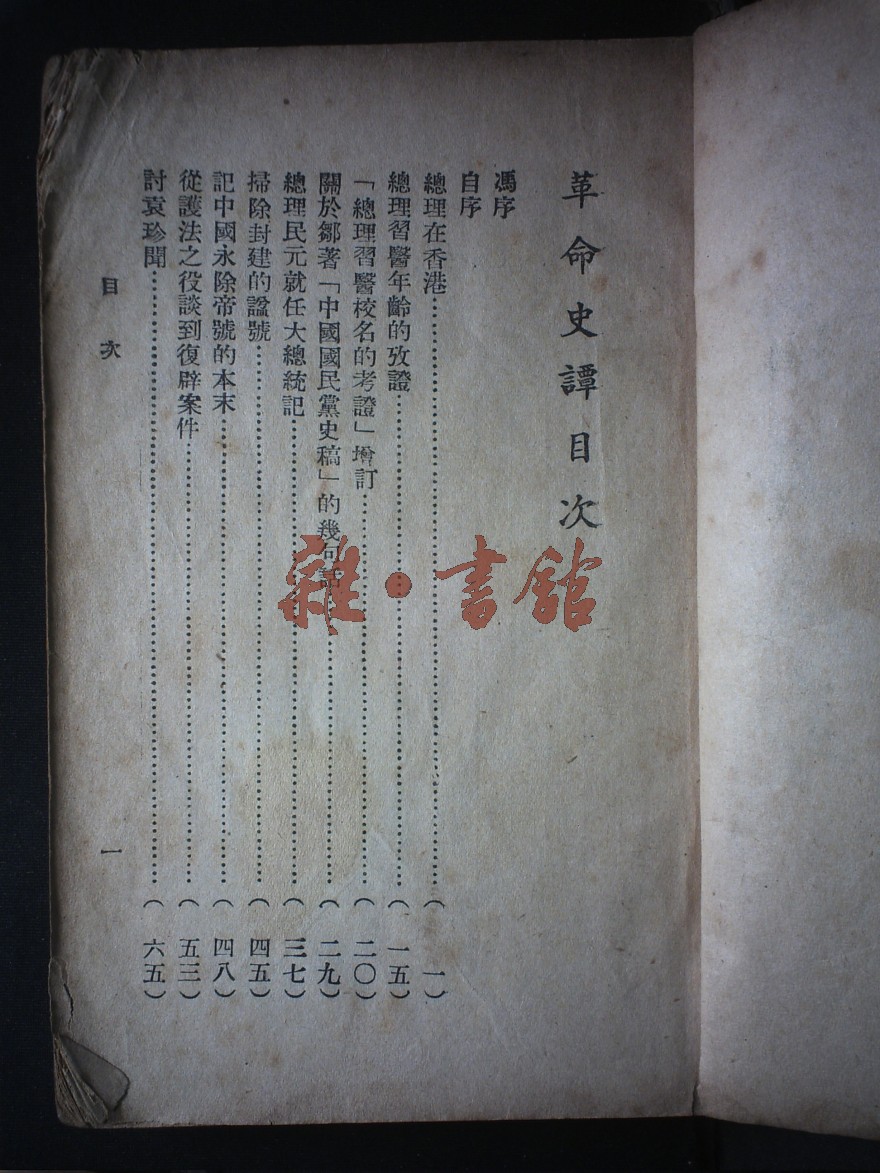 革命史譚目次
馮序
自序
總理在香港……（一）
總理習醫年齡的攷證……（一五）
「總理習醫校名的考證」增訂……（二〇）
關於鄒著「中國國民黨史稿」的幾句話……（二九）
總理民元就任大總統記……（三七）
掃除封建的諡號……（四五）
記中國永除帝號的本末……（四八）
從護法之役談到復辟案件……（五三）
討袁珍聞……（六五）
目次
一
雜·書館